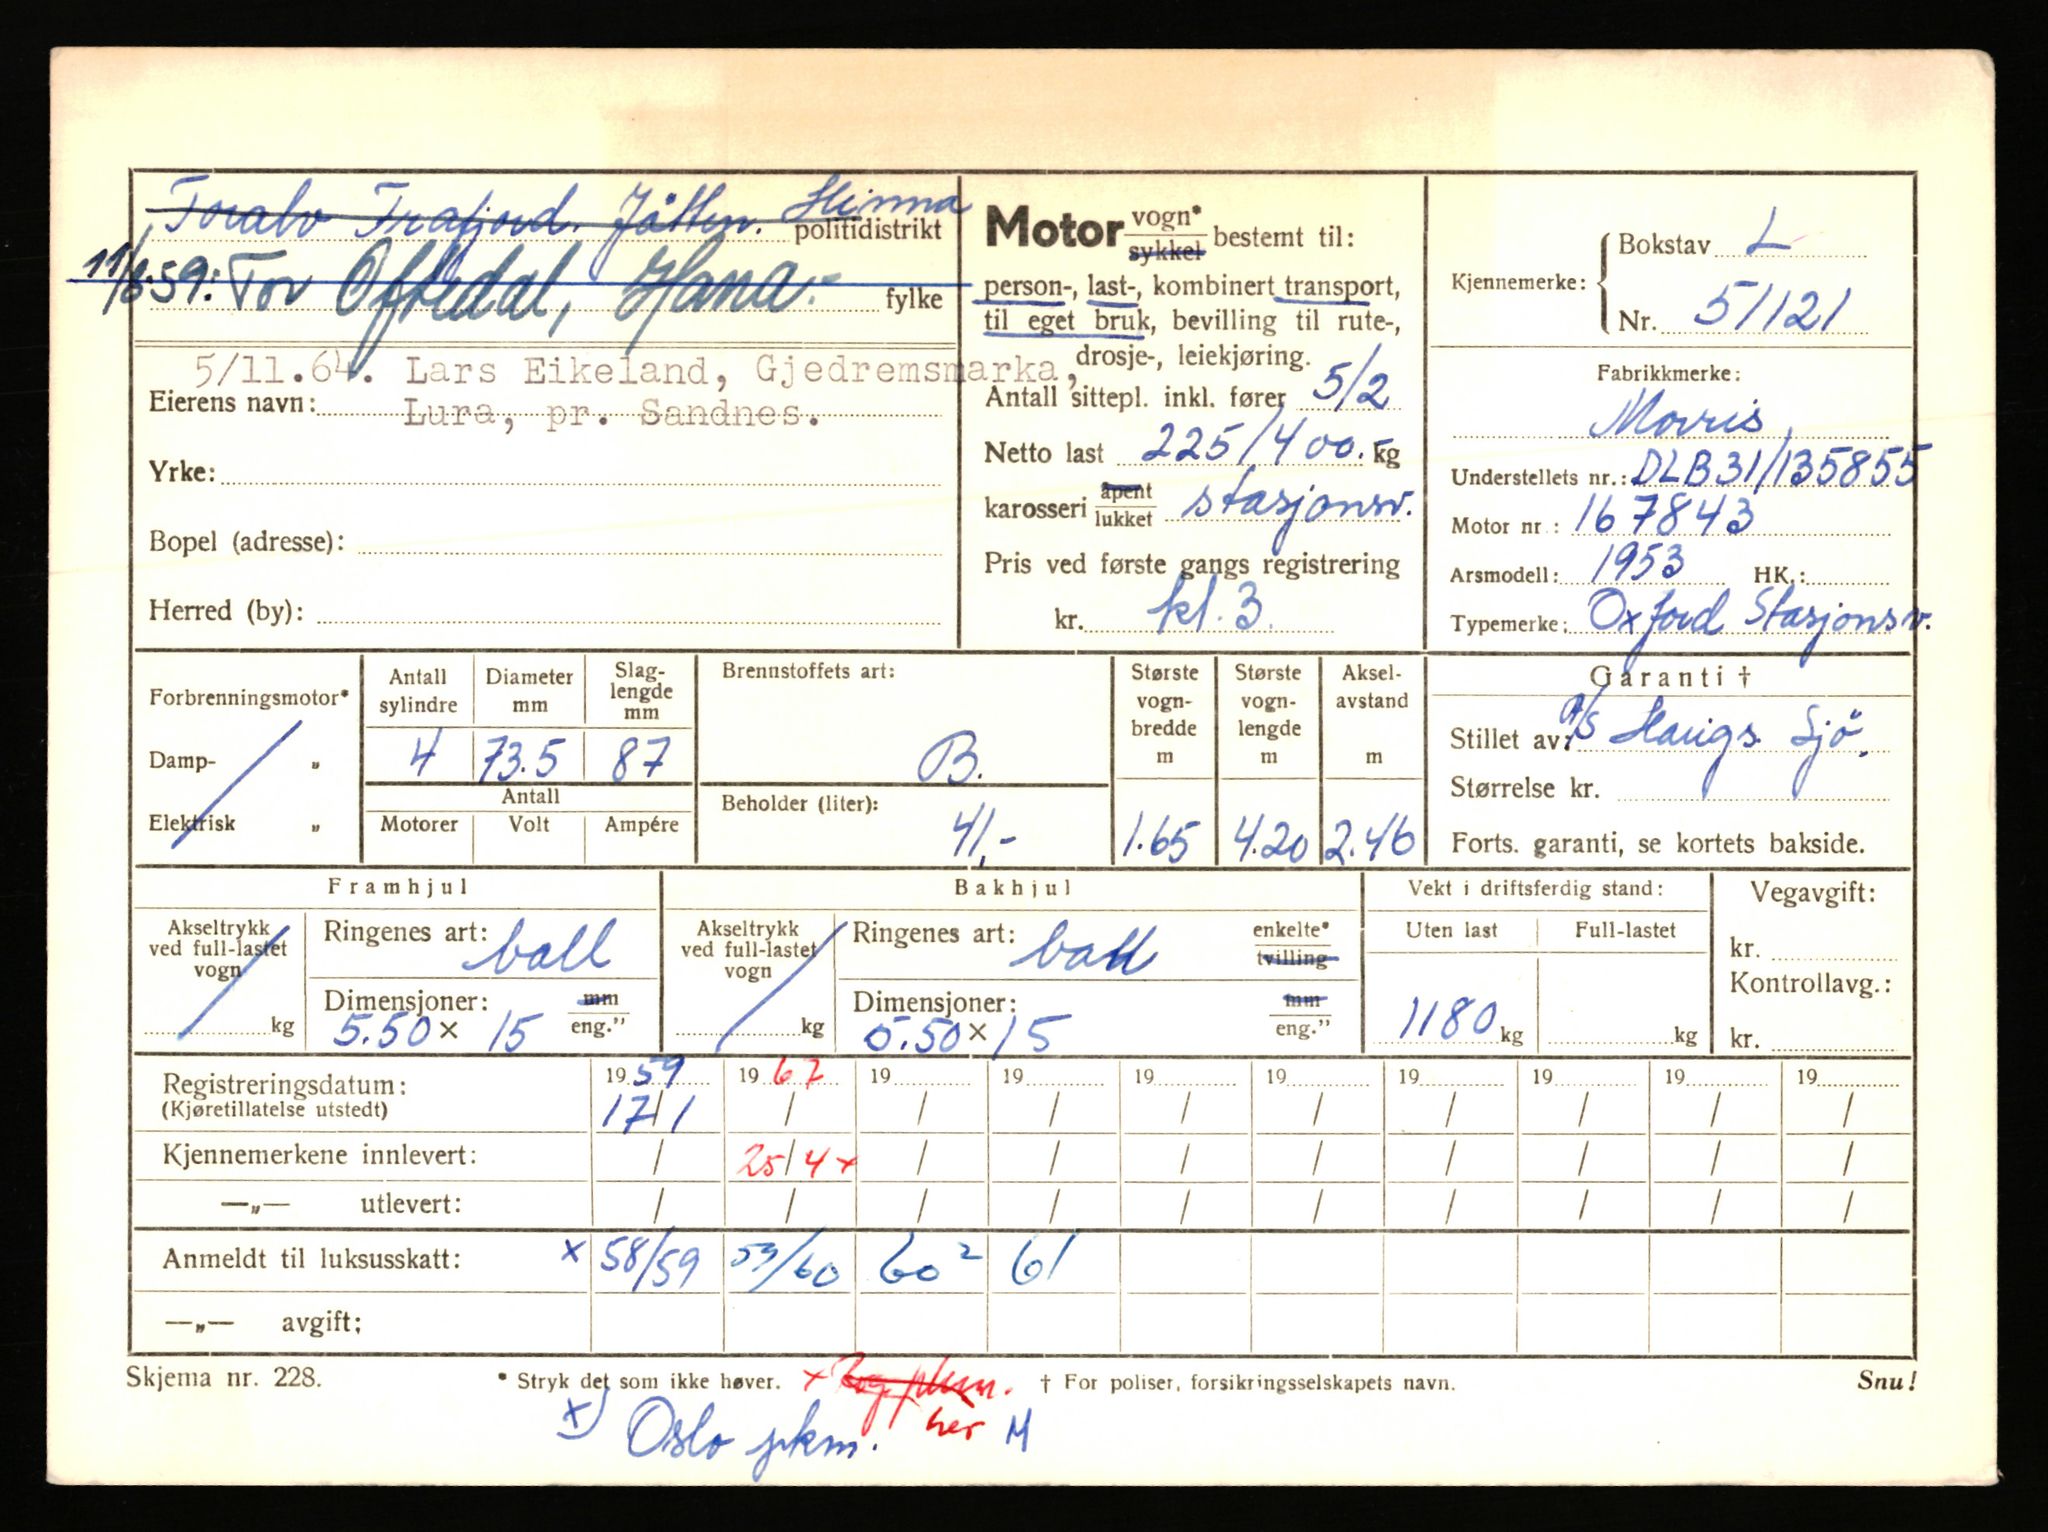 Toralv Trafjord. Jåtten. Hinna
politidistrikt
11/6.59: Tor Oftedal, Hana.-
fylke
5/11.64. Lars Eikeland, Gjedremsmarka,
Eierens navn: Lura, pr. Sandnes.
Yrke:
Bopel (adresse):
Herred (by):
Motor vogn* sykkel bestemt til:
person-, last-, kombinert transport,
til eget bruk, bevilling til rute-,
drosje-, leiekjøring.
Antall sittepl. inkl. fører 5/2
Netto last 225/400. kg
karosseri åpent lukket stasjonsv.
Pris ved første gangs registrering
kr. kl. 3.
Kjennemerke: Bokstav L
Nr. 51121
Fabrikkmerke:
Morris
Understellets nr.: DLB31/135855
Motor nr.: 167843
Arsmodell: 1953 HK.:
Typemerke: Oxford Stasjonsv.
Forbrenningsmotor*
Damp- „
Elektrisk „
Antall sylindre 4
Diameter mm 73.5
Slag-lengde mm 87
Antall
Motorer Volt Ampére
Brennstoffets art:
B.
Beholder (liter):
41,-
Største vogn-bredde m 1.65
Største vogn-lengde m 4.20
Aksel-avstand m 2.46
Garanti †
Stillet av: A/S Haugs Sjö.
Størrelse kr.
Forts. garanti, se kortets bakside.
Framhjul
Akseltrykk ved full-lastet vogn
kg
Ringenes art: ball
Dimensjoner: mm
5.50 × 15 eng."
Bakhjul
Akseltrykk ved full-lastet vogn
kg
Ringenes art: ball enkelte* tvilling
Dimensjoner: mm
5.50 × 15 eng."
Vekt i driftsferdig stand:
Uten last Full-lastet
1180 kg kg
Vegavgift:
kr.
Kontrollavg.:
kr.
Registreringsdatum: 19 59 19 67 19 19 19 19 19 19 19 19
(Kjøretillatelse utstedt) 17/1 / / / / / / / / /
Kjennemerkene innlevert: / 25/4 × / / / / / / / /
—„— utlevert: / / / / / / / / / /
Anmeldt til luksusskatt: × 58/59 59/60 60² 61
—„— avgift:
Skjema nr. 228. * Stryk det som ikke høver. × Rog pkm. † For poliser, forsikringsselskapets navn. Snu!
×) Oslo pkm. her M